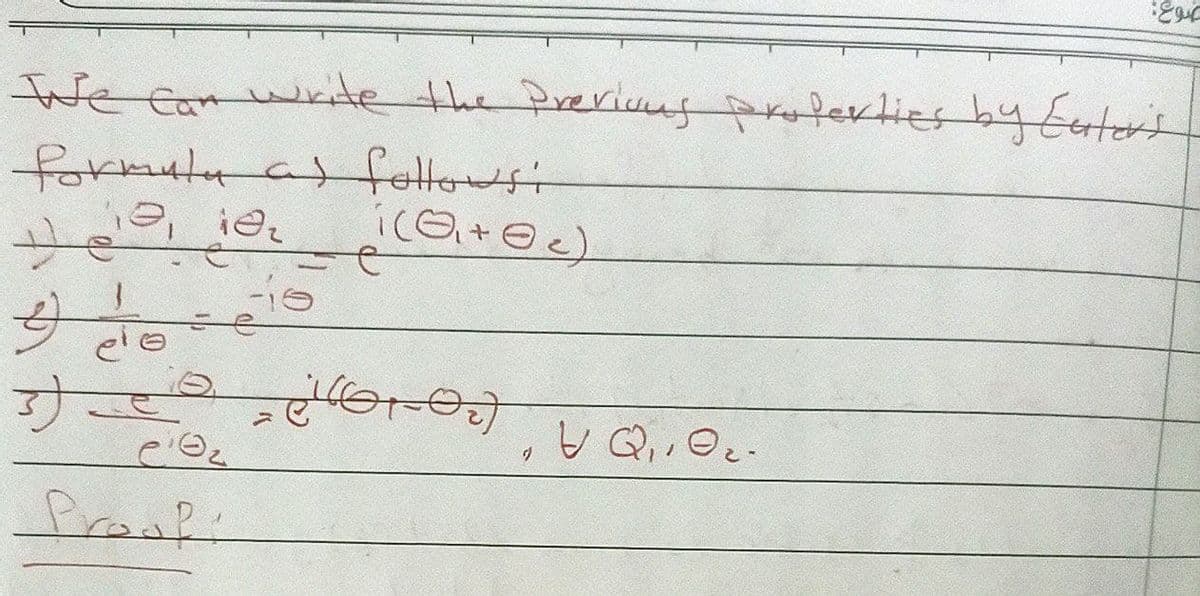 We can write the Previous properties by Euler's
formula as follows:
1) e^{iθ₁} . e^{iθ₂} = e^{i(θ₁+θ₂)}
2) 1/e^{iθ} = e^{-iθ}
3) e^{iθ₁}/e^{iθ₂} = e^{i(θ₁-θ₂)} , ∀ θ₁, θ₂.
Proof: